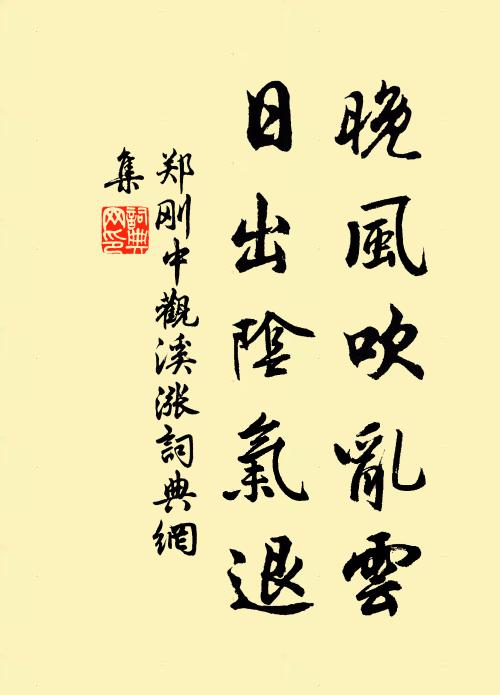 晚風吹亂雲
日出陰氣退
郑刚中觀溪漲詞典網
集
詞典網印